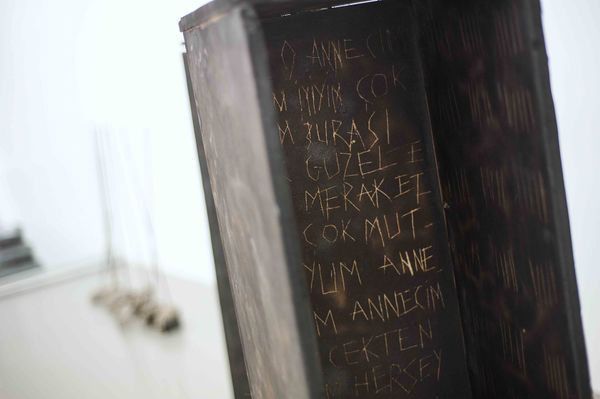 O ANNECİM
M İYİYİM ÇOK
M BURASI
GÜZEL E
MERAK ET
ÇOK MUT-
YUM ANNE
M ANNECİM
ÇEKTEN
HERŞEY